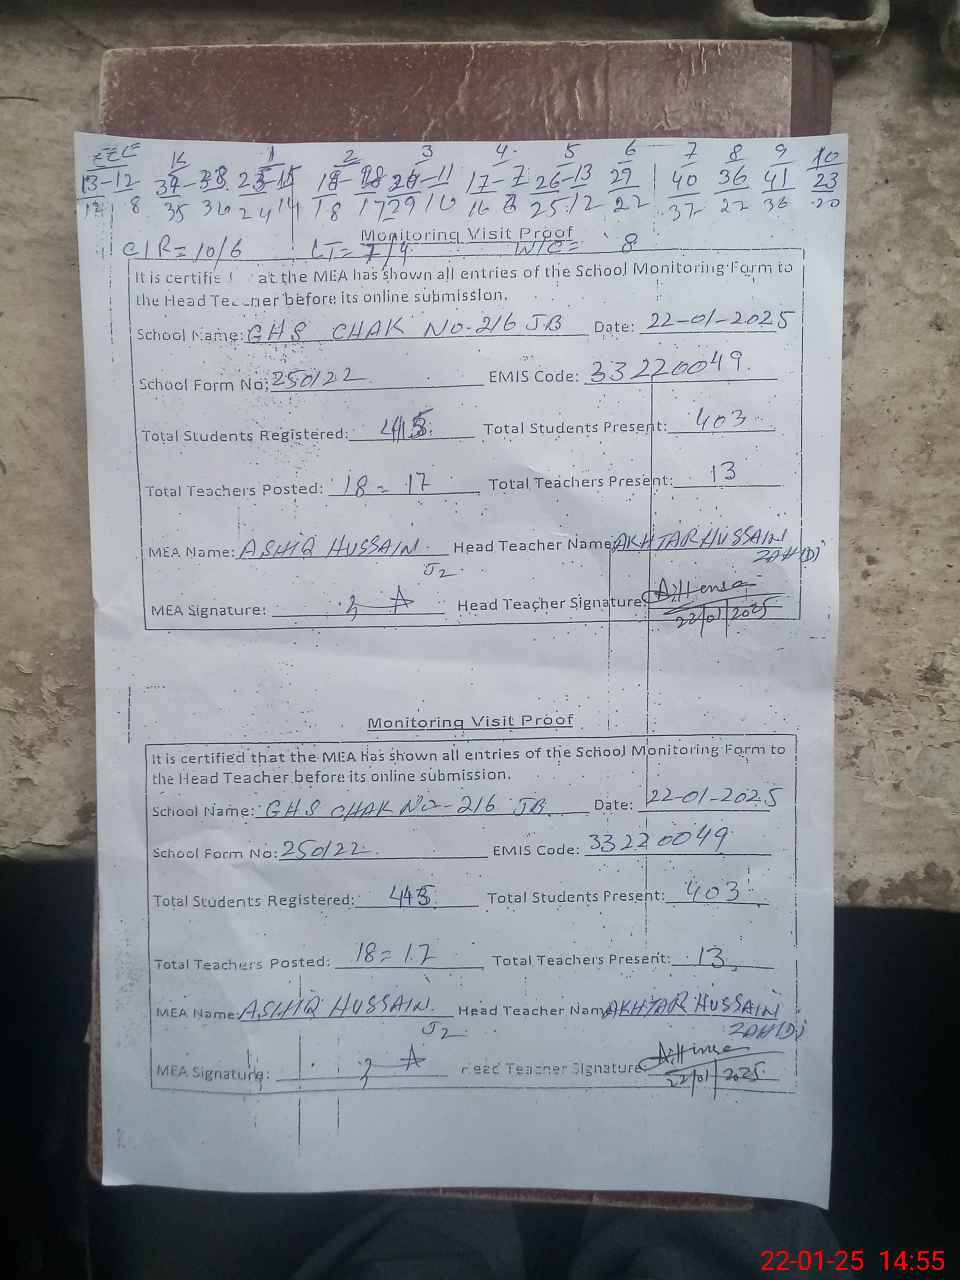 ECE K 1 2 3 4 5 6 7 8 9 10
13-12 17-7 26-13 29 40 36 41 23
12 8 35 36 24 14 18 17 29 16 16 25-12 22 37 27 36 20
Monitoring Visit Proof
C/R=10/6 LT=7/9 W/C= 8
It is certifie at the MEA has shown all entries of the School Monitoring Form to
the Head Te ner before its online submission.
School Name: GHS CHAK NO-216 JB Date: 22-01-2025
School Form No: 250122 EMIS Code: 33220049
Total Students Registered: Total Students Present: 403
Total Teachers Posted: 18= 17 Total Teachers Present: 13
MEA Name: ASHIQ HUSSAIN Head Teacher Name: AKHTAR HUSSAIN
J2
MEA Signature: Head Teacher Signature:
22/01/2025
Monitoring Visit Proof
It is certified that the MEA has shown all entries of the School Monitoring Form to
the Head Teacher before its online submission.
School Name: GHS CHAK NO-216 JB Date: 22-01-2025
School Form No: 250122 EMIS Code: 33220049
Total Students Registered: Total Students Present: 403
Total Teachers Posted: 18= 17 Total Teachers Present: 13
MEA Name: ASHIQ HUSSAIN Head Teacher Name: AKHTAR HUSSAIN
J2
MEA Signature: Head Teacher Signature:
22/01/2025
22-01-25 14:55